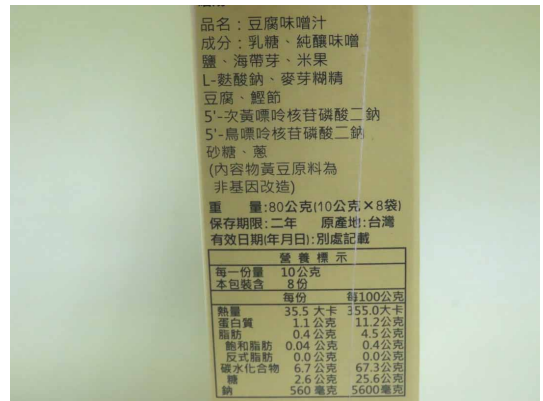 品名：豆腐味噌汁
成分：乳糖、純釀味噌
鹽、海帶芽、米果
L-麩酸鈉、麥芽糊精
豆腐、鰹節
5'-次黃嘌呤核苷磷酸二鈉
5'-鳥嘌呤核苷磷酸二鈉
砂糖、蔥
(內容物黃豆原料為
非基因改造)
重 量:80公克(10公克×8袋)
保存期限:二年 原產地:台灣
有效日期(年月日):別處記載
營養標示
每一份量 10公克
本包裝含 8份
每份 每100公克
熱量 35.5 大卡 355.0大卡
蛋白質 1.1 公克 11.2公克
脂肪 0.4 公克 4.5公克
飽和脂肪 0.04 公克 0.4公克
反式脂肪 0.0 公克 0.0公克
碳水化合物 6.7 公克 67.3公克
糖 2.6 公克 25.6公克
鈉 560 毫克 5600毫克